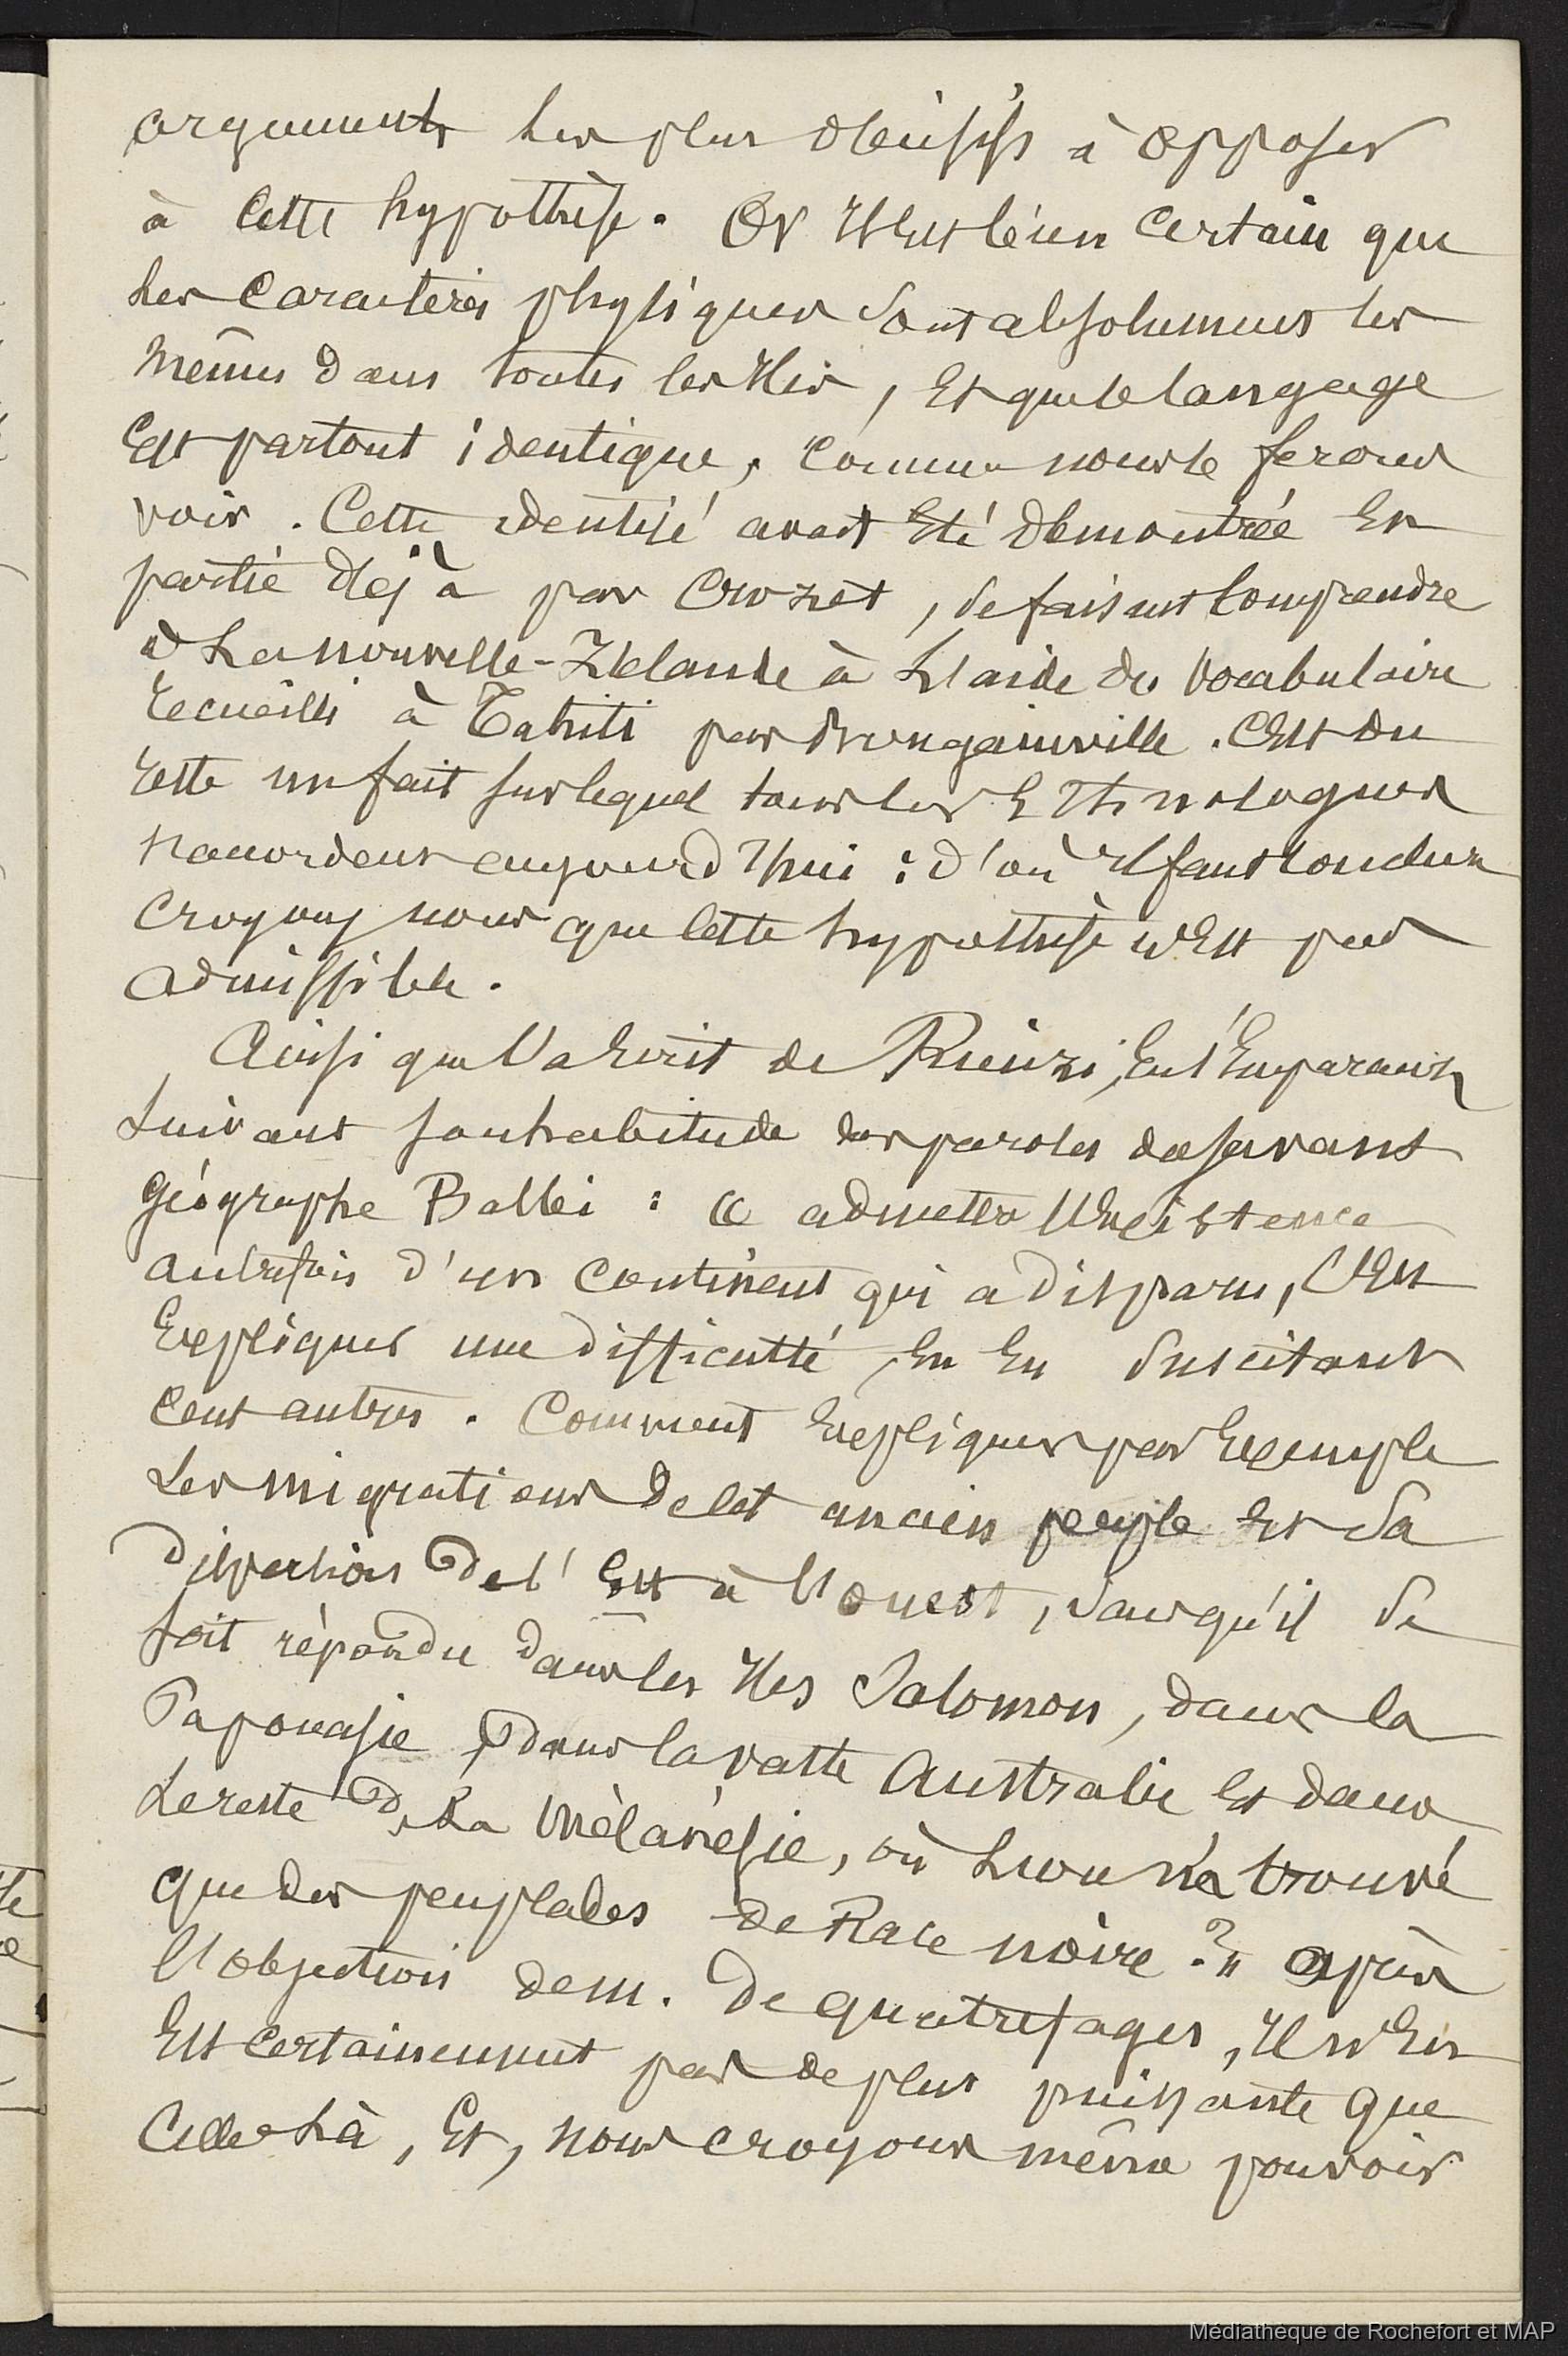 arguments les plus décisifs à opposer
à cette hypothèse. Or il est bien certain que
les caractères physiques sont absolument les
mêmes dans toutes les îles, et que le langage
est partout identique, comme nous le ferons
voir. Cette identité avait été démontrée en
partie déjà par Crozet, se faisant comprendre
à la nouvelle-Zélande à l'aide du vocabulaire
recueilli à Tahiti par Bougainville. C'est du
reste un fait sur lequel tous les Ethnologues
s'accordent aujourd'hui : d'où il faut conclure
croyons nous que cette hypothèse n'est pas
admissible.
Ainsi que l'a écrit de Rienzi, en s'emparant
suivant son habitude des paroles du savant
géographe Balbi : « admettre l'existence
autrefois d'un continent qui a disparu, c'est
expliquer une difficulté en en suscitant
cent autres. Comment expliquer par exemple
les migrations de cet ancien peuple et sa
dispersion de l'Est à l'ouest, sans qu'il se
soit répandu dans les îles Salomon, dans la
Papouasie, dans la vaste Australie et dans
le reste de la Mélanésie, où l'on n'a trouvé
que des peuplades de Race noire ? » après
l'objection de m. de quatrefages, il n'en
est certainement pas de plus puissante que
celle là, et, nous croyons même pouvoir
Médiathèque de Rochefort et MAP